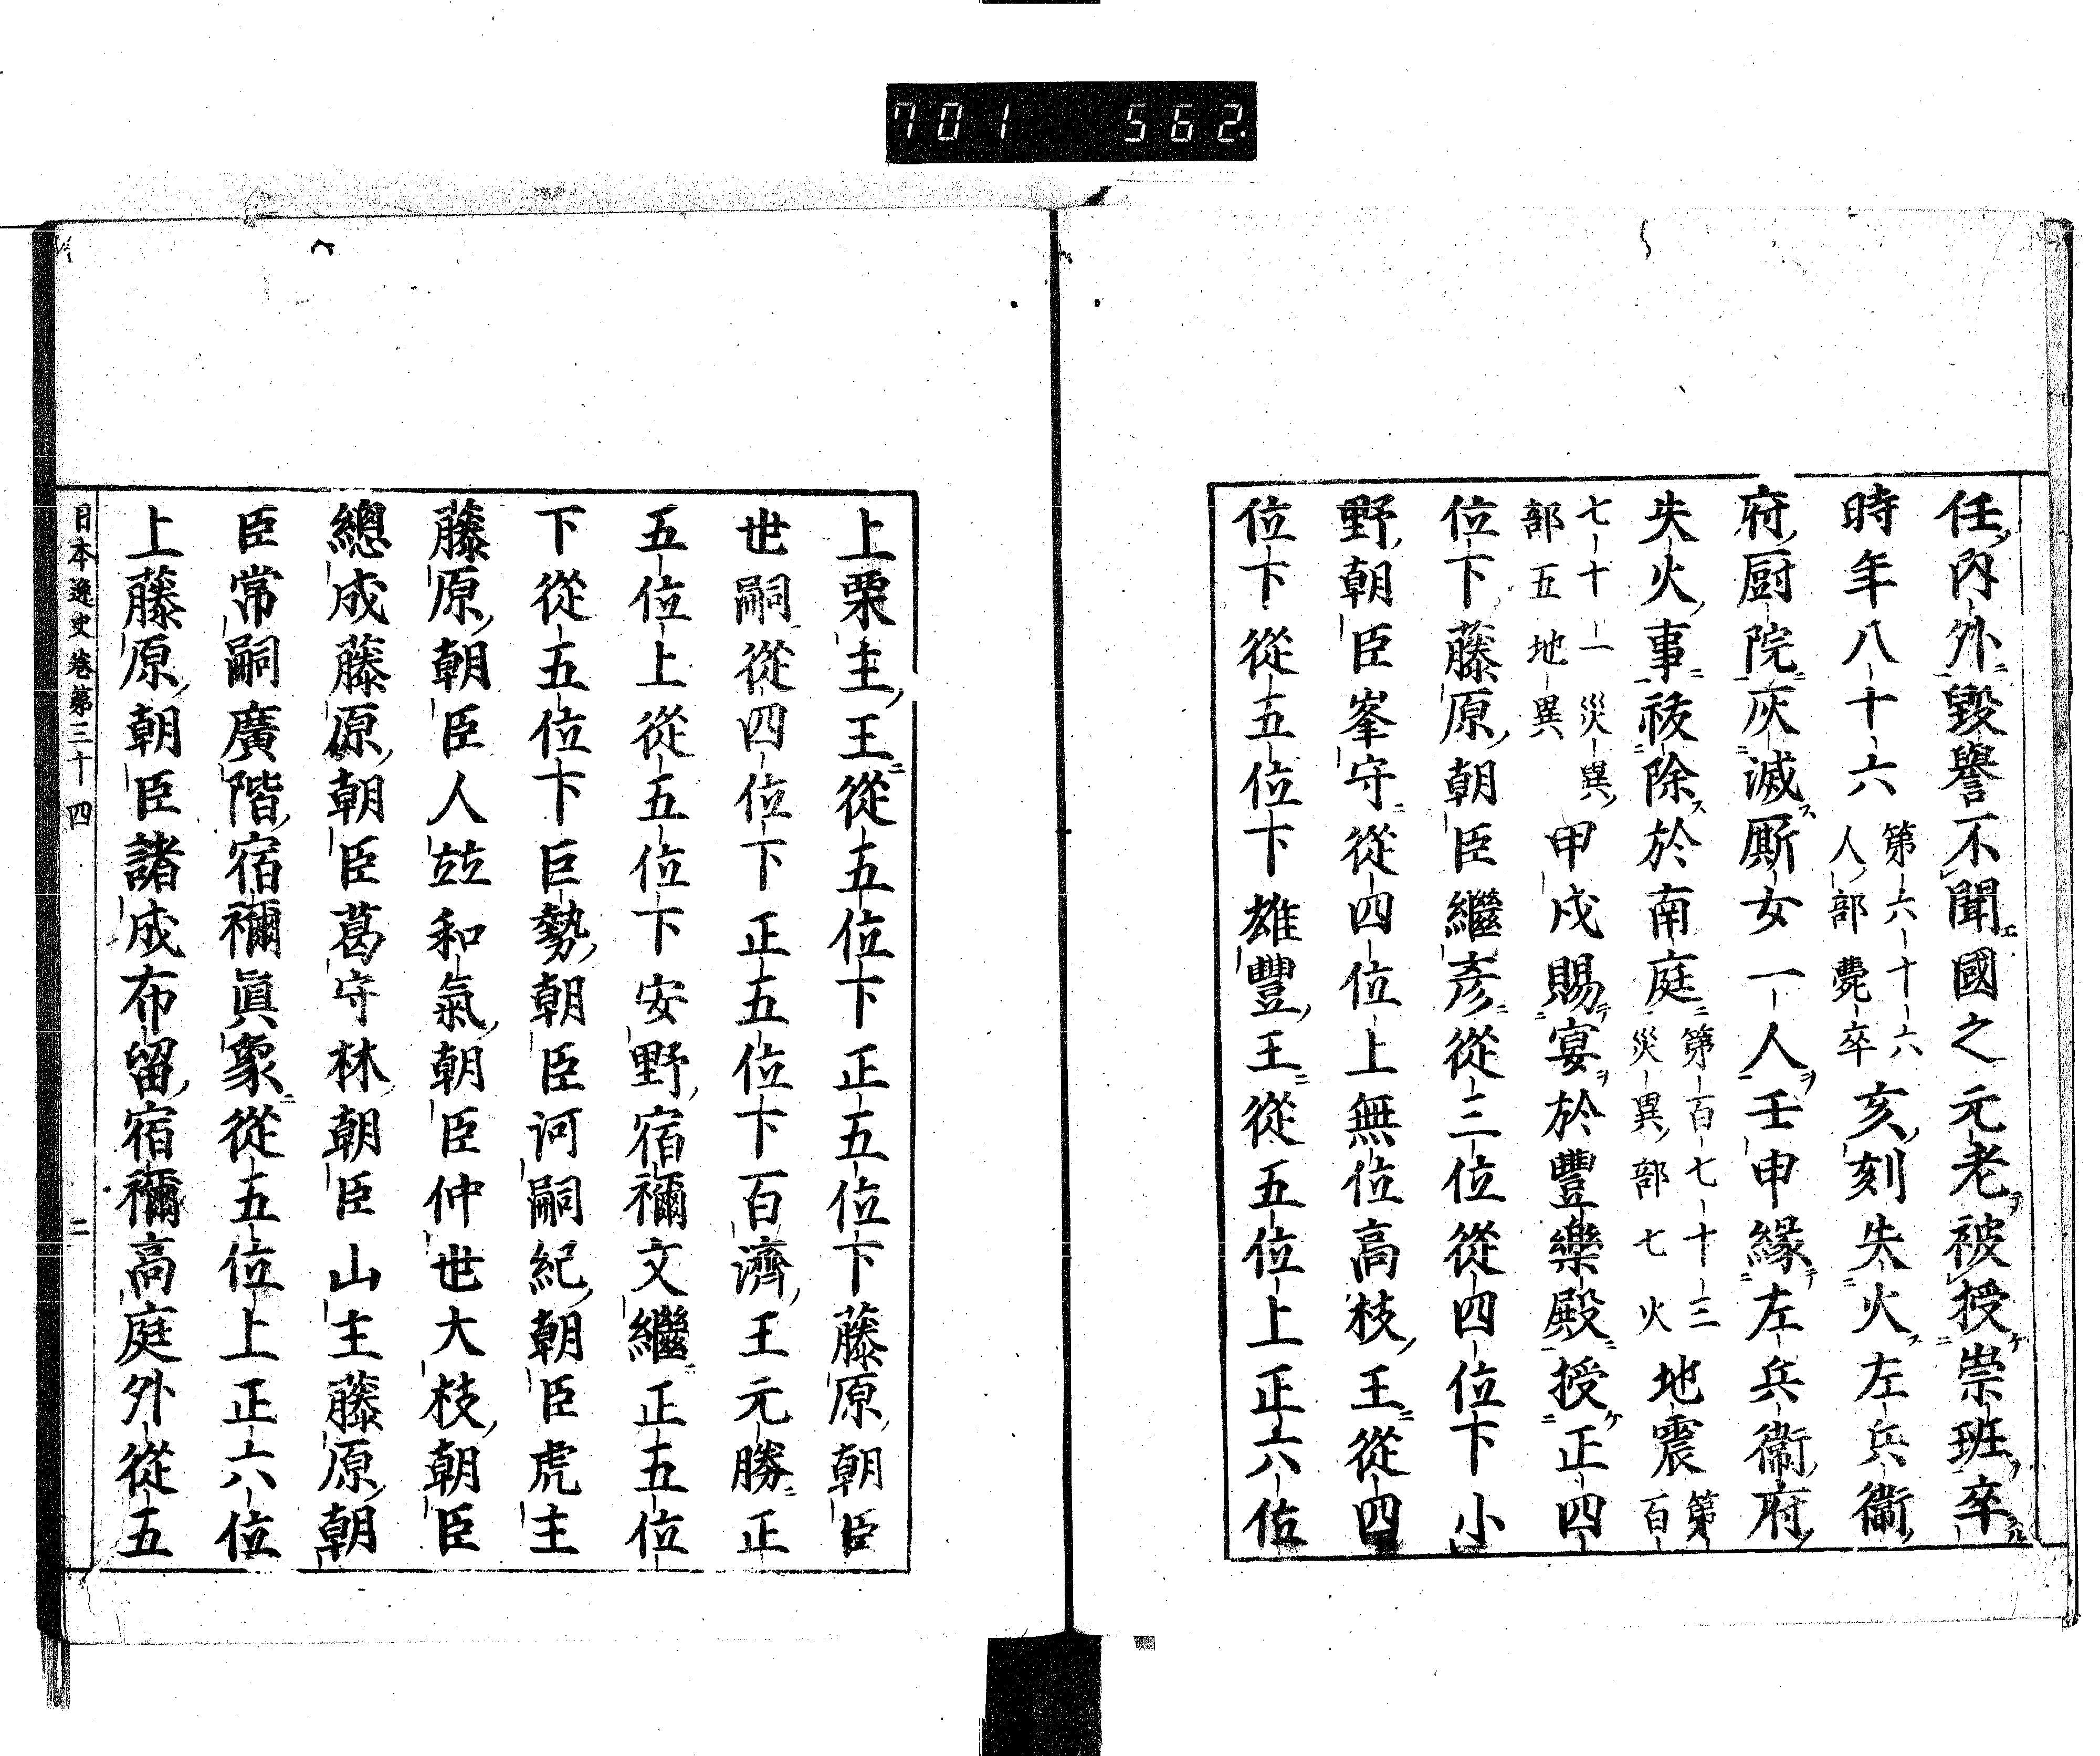 701 562.
任内外毀譽不聞國之元老被授崇班卒
時年八十六第六十六人部薨卒亥刻失火左兵衞
府厨院灰滅厮女一人壬申縁左兵衞府
失火事祓除於南庭第百七十三災異部七火地震第百
七十一災異部五地異甲戌賜宴於豐樂殿授正四
位下藤原朝臣繼彥從三位從四位下小
野朝臣峯守從四位上無位高枝王從四
位下從五位下雄豐王從五位上正六位
上栗主王從五位下正五位下藤原朝臣
世嗣從四位下正五位下百濟王元勝正
五位上從五位下安野宿禰文繼正五位
下從五位下巨勢朝臣河嗣紀朝臣虎主
藤原朝臣人竝和氣朝臣仲世大枝朝臣
總成藤原朝臣葛守林朝臣山主藤原朝
臣常嗣廣階宿禰眞象從五位上正六位
上藤原朝臣諸成布留宿禰高庭外從五
日本逸史卷第三十四 二